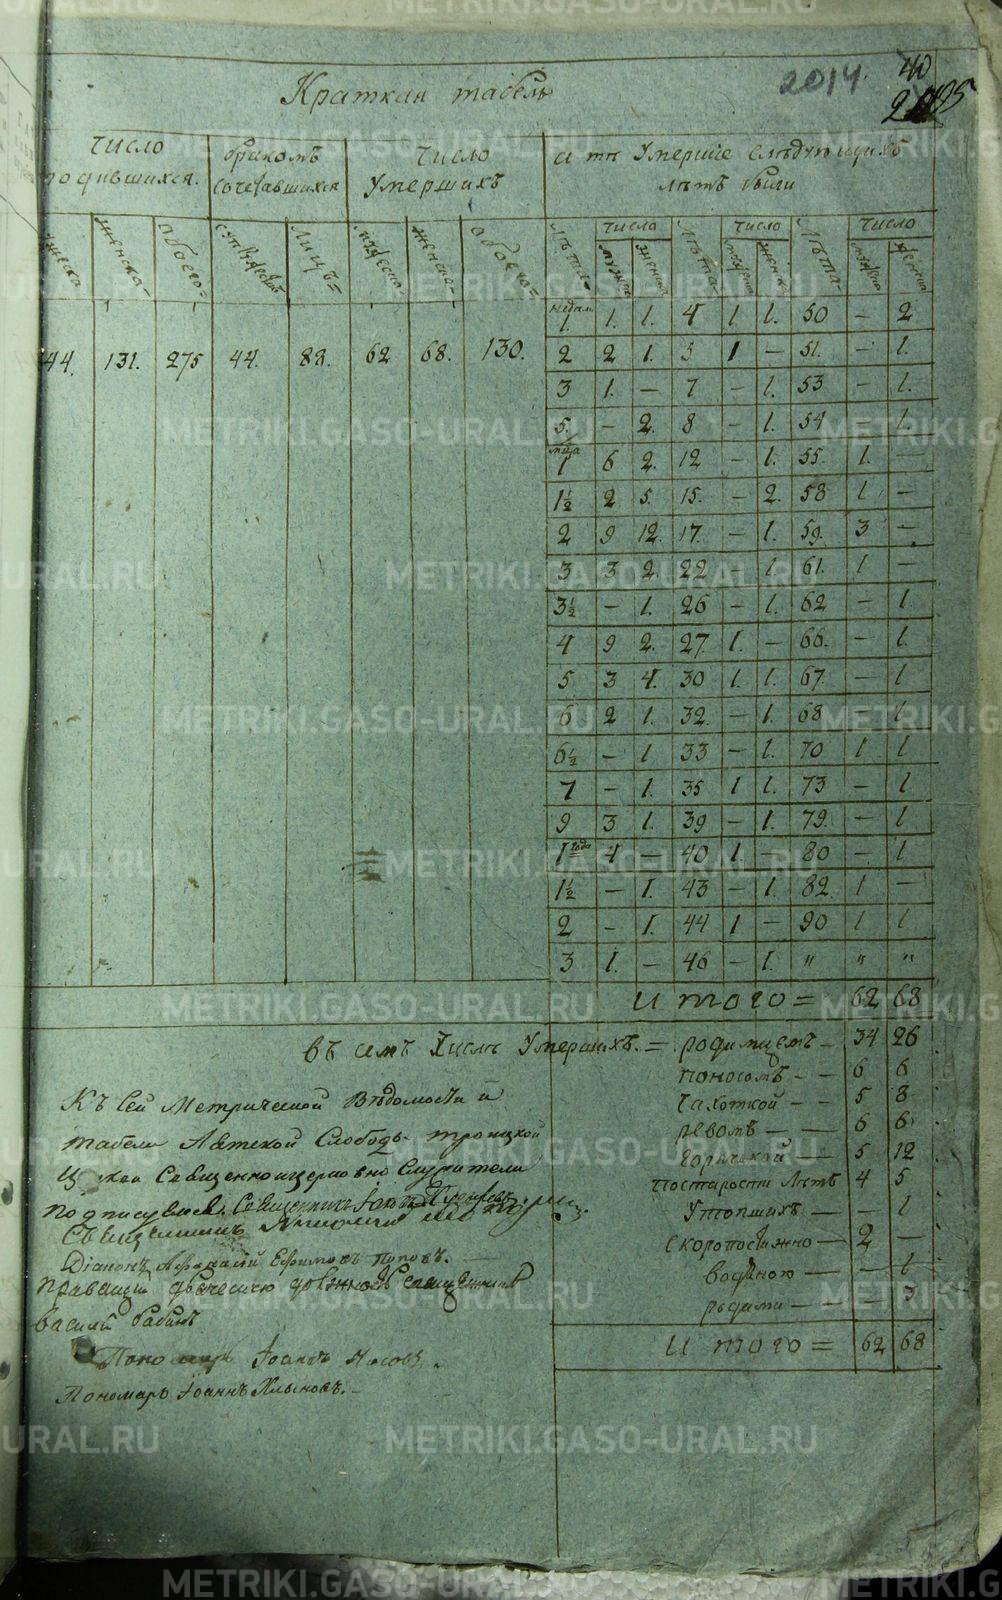 2014. 40
Краткая табель
число родившихся. бракомъ сочетавшихся число умершихъ а тѣ умершіе слѣдующихъ лѣтъ были
женска= обоего= лицъ= мужеска= женска= обоего=
число число число
лѣта лѣта
недѣл. 1. 1. 1. 4 1 1. 50 – 2
44. 131. 275 44. 88. 62 68. 130.
2 2 1. 5 1 – 51. – 1.
3 1. – 7 – 1. 53 – 1.
5. – 2. 8 – 1. 54 – 1.
1 6 2. 12 – 1. 55. 1. –
1½ 2 5. 15. – 2. 58 1 –
2 9 12. 17. – 1. 59. 3 –
3 3 2. 22 – 1. 61. 1 –
3½ – 1. 26 – 1. 62 – 1.
4 9 2. 27. 1. – 66. – 1.
5. 3 4. 30 1. 1. 67. – 1
6 2 1. 32. – 1. 68 – 1
6½ – 1 33 – 1. 70 1 1
7 – 1. 35 1 1. 73 – 1
9 3 1. 39 – 1. 79. – 1
1 года 4 – 40 1 – 80 – 1
1½ – 1. 43 – 1. 82. 1 –
2 – 1. 44 1 – 90 1 1
3 1. – 46 – 1. " " "
Итого= 62 68
въ семъ числѣ умершихъ.= родимцемъ – 34 26
поносомъ – – 6 6
чахоткой – – 5 8
ревомъ – – 6 6
горячкой – 5 12
постарости лѣтъ 4 5
утопшихъ – – 1
скоропостижно – 2 –
водяною – – 1
родами – – – 3
Итого= 62 68
Къ сей Метрической Вѣдомости и
табели Слободы троицкой
церкви Священноцерковно служители
подписуемся. Священникъ
Священникъ
Діаконъ Афанасій Ефимовъ Поповъ.
Василій Бабинъ
Пономарь Іоаннъ Носовъ.
Пономарь Іоаннъ Хлыновъ.
METRIKI.GASO-URAL.RU